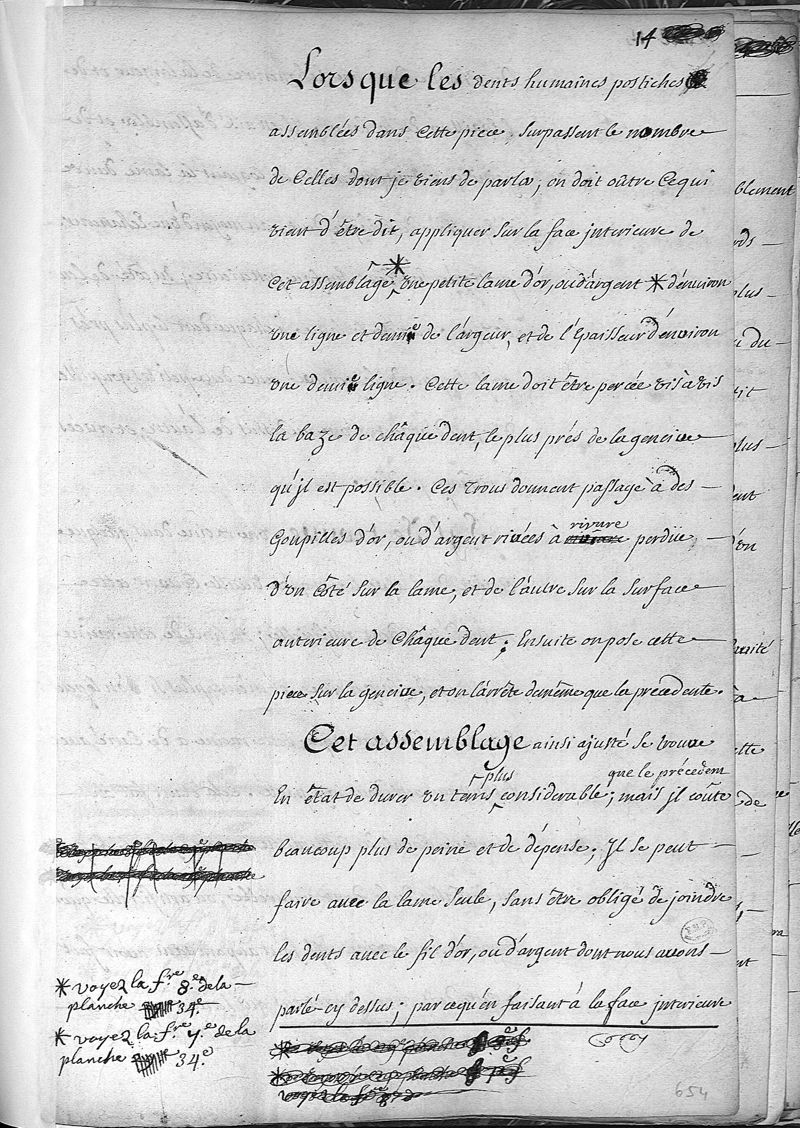 14
Lorsque les dents humaines postiches
assemblées dans Cette piece, surpassent le nombre
de Celles dont je viens de parler, on doit oûtre Cequi
vient d'être dit, appliquer sur la face interieure de
Cet assemblâge * vne petite lame d'or, ou d'argent * d'énviron
vne ligne et demie de l'argeur, et de l'Epaisseur d'énviron
vne demie ligne. Cette lame doit être percée vis à vis
la baze de châque dent, le plus prés de la gencive
qu'jl est possible. Ces trous donnent passage à des
Goupilles d'or, ou d'argent rivées à rivure perdüe,
d'un Côté sur la lame, et de l'autre sur la surface
anterieure de Châque dent; Ensuite on pose cette
piece sur la gencive, et on l'arrête de même que la precedente.
Cet assemblage ainsi ajusté se trouve
En état de durer vn tems plus considerable que le précedent; mais jl coûte
beaucoup plus de peine et de dépense; Jl se peut
faire avec la lame seule, sans être obligé de joindre
les dents avec le fil d'or, ou d'argent dont nous avons
parlé cy dessus; parcequ'en faisant à la face interieure
* voyez la f.re 8.e de la
planche 34.e
* voyez la f.re 7.e de la
planche 34.e
654